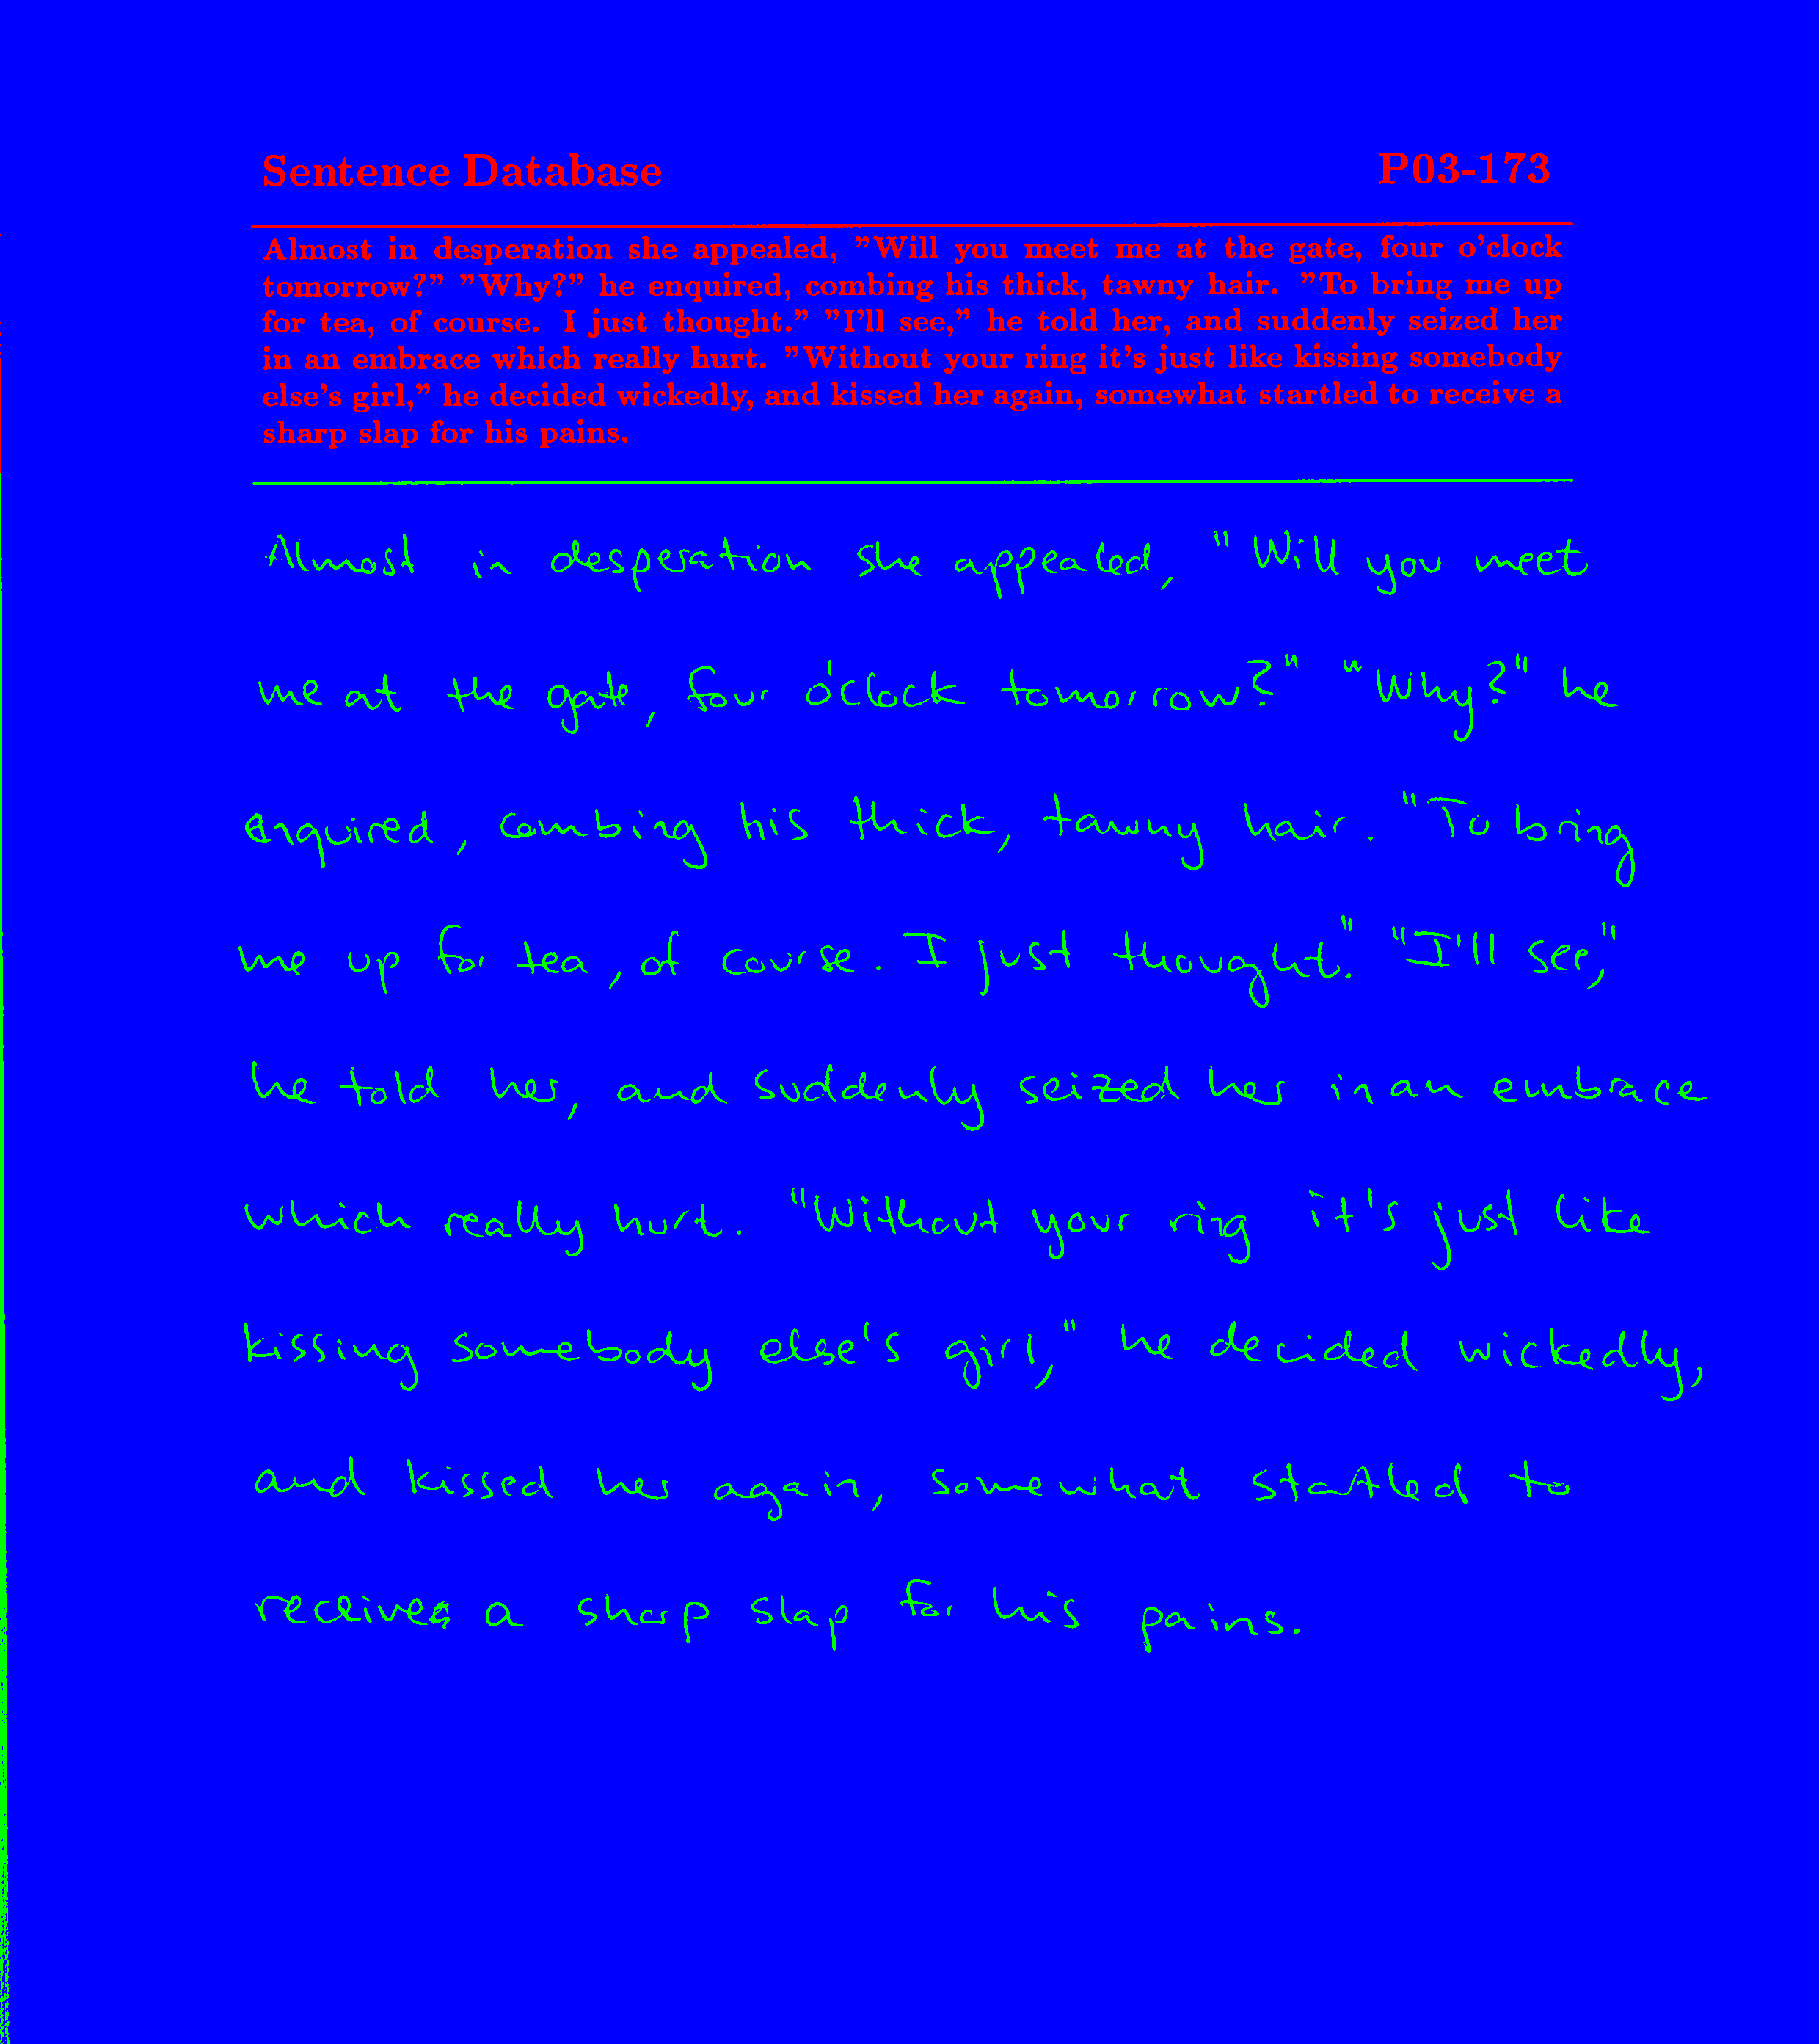 Sentence Database P03-173
Almost in desperation she appealed, "Will you meet me at the gate, four o'clock
tomorrow?" "Why?" he enquired, combing his thick, tawny hair. "To bring me up
for tea, of course. I just thought." "I'll see," he told her, and suddenly seized her
in an embrace which really hurt. "Without your ring it's just like kissing somebody
else's girl," he decided wickedly, and kissed her again, somewhat startled to receive a
sharp slap for his pains.
Almost in desperation she appealed, "Will you meet
me at the gate, four o'clock tomorrow?" "Why?" he
enquired, combing his thick, tawny hair. "To bring
me up for tea, of course. I just thought." "I'll see,"
he told her, and suddenly seized her in an embrace
which really hurt. "Without your ring it's just like
kissing somebody else's girl," he decided wickedly,
and kissed her again, somewhat startled to
receive a sharp slap for his pains.